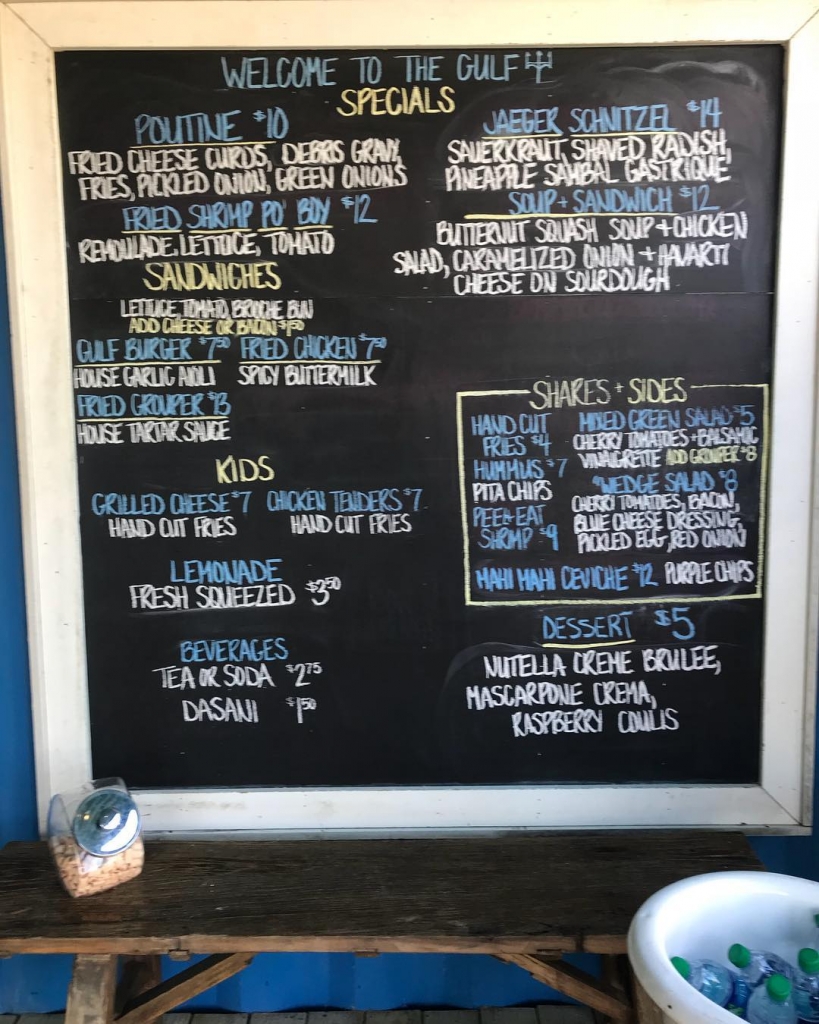 WELCOME TO THE GULF
SPECIALS
POUTINE $10
FRIED CHEESE CURDS, DEBRIS GRAVY,
FRIES, PICKLED ONION, GREEN ONIONS
FRIED SHRIMP PO' BOY $12
REMOULADE, LETTUCE, TOMATO
JAEGER SCHNITZEL $14
SAUERKRAUT, SHAVED RADISH,
PINEAPPLE SAMBAL GASTRIQUE
SOUP + SANDWICH $12
BUTTERNUT SQUASH SOUP + CHICKEN
SALAD, CARAMELIZED ONION + HAVARTI
CHEESE ON SOURDOUGH
SANDWICHES
LETTUCE, TOMATO, BRIOCHE BUN
ADD CHEESE OR BACON $1.50
GULF BURGER $7.50 FRIED CHICKEN $7.50
HOUSE GARLIC AIOLI SPICY BUTTERMILK
FRIED GROUPER $13
HOUSE TARTAR SAUCE
KIDS
GRILLED CHEESE $7 CHICKEN TENDERS $7
HAND CUT FRIES HAND CUT FRIES
LEMONADE
FRESH SQUEEZED $3.50
BEVERAGES
TEA OR SODA $2.75
DASANI $1.50
SHARES + SIDES
HAND CUT
FRIES $4
HUMMUS $7
PITA CHIPS
PEEL+EAT
SHRIMP $9
MIXED GREEN SALAD $5
CHERRY TOMATOES + BALSAMIC
VINAIGRETTE ADD GROUPER $8
"WEDGE SALAD $8
CHERRY TOMATOES, BACON,
BLUE CHEESE DRESSING,
PICKLED EGG, RED ONION
MAHI MAHI CEVICHE $12 PURPLE CHIPS
DESSERT $5
NUTELLA CREME BRULEE,
MASCARPONE CREMA,
RASPBERRY COULIS